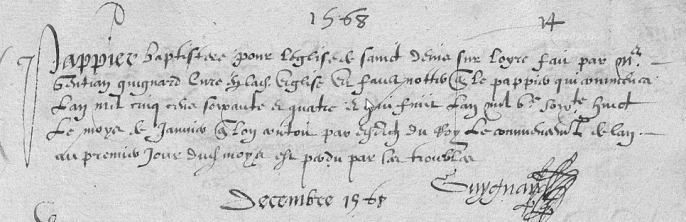 1568 14
Pappier baptistere pour leglise de sainct denis sur loyre faict par mre
Gentian guignard cure de lad. eglise Et fault notter q le pappier qui commenca
Lan mil cinq cens soixante et quatre et qui finit Lan mil vc soixte huict
Le moys de Janvier q lon comptoit par esdict du Roy Le commencemt de lan
au premier Jour dud. moys est perdu par les troubles
Guygnard
Decembre 1568